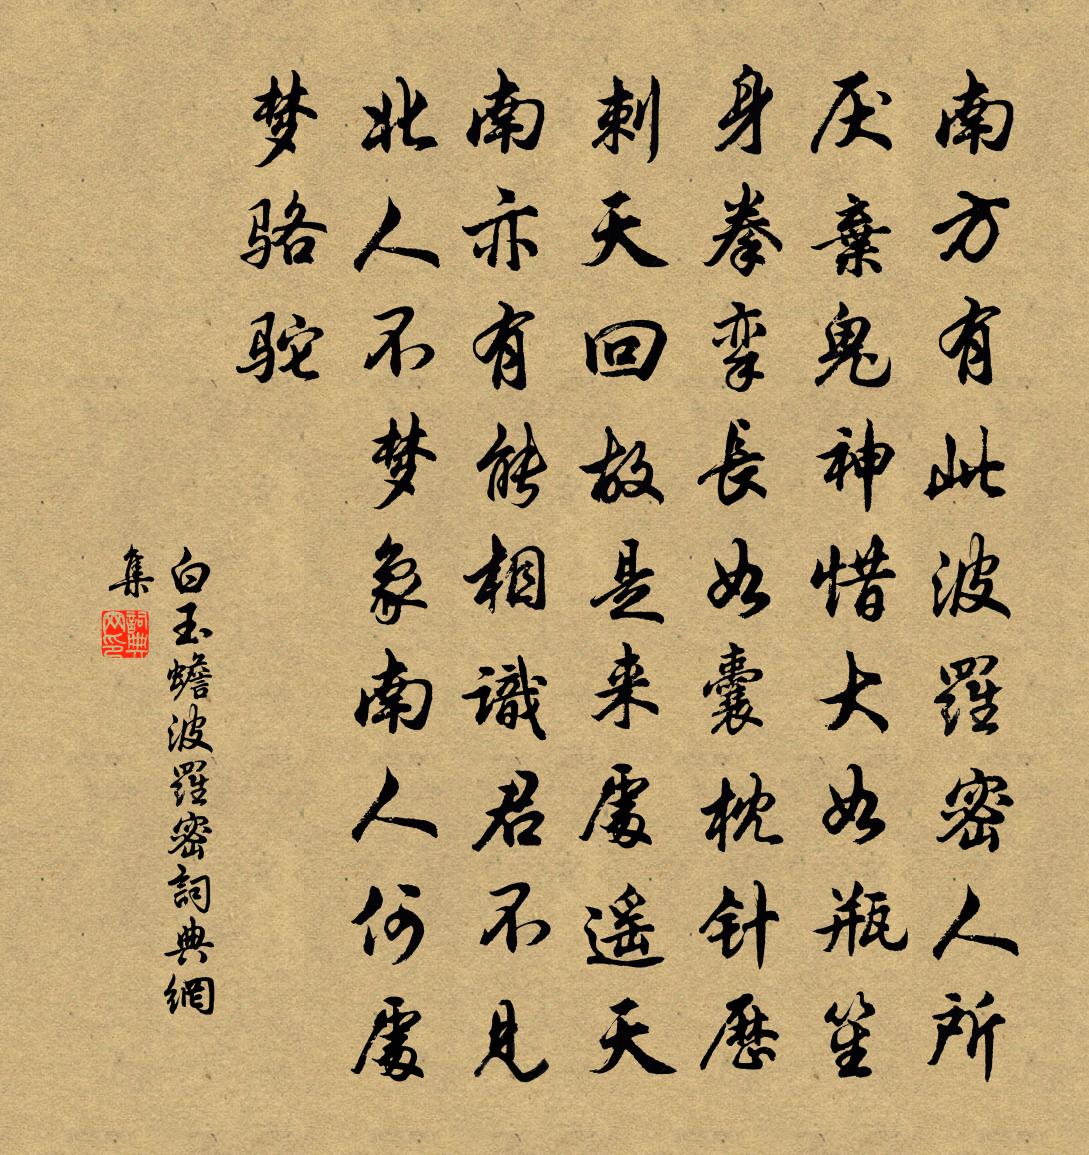 南方有此波羅密人所
厌棄鬼神惜大如瓶笙
身拳挛長如囊枕针歷
刺天回故是来處遥天
南亦有能相識君不見
北人不梦象南人何處
梦骆驼
白玉蟾波羅密詞典網
集
詞典
网印